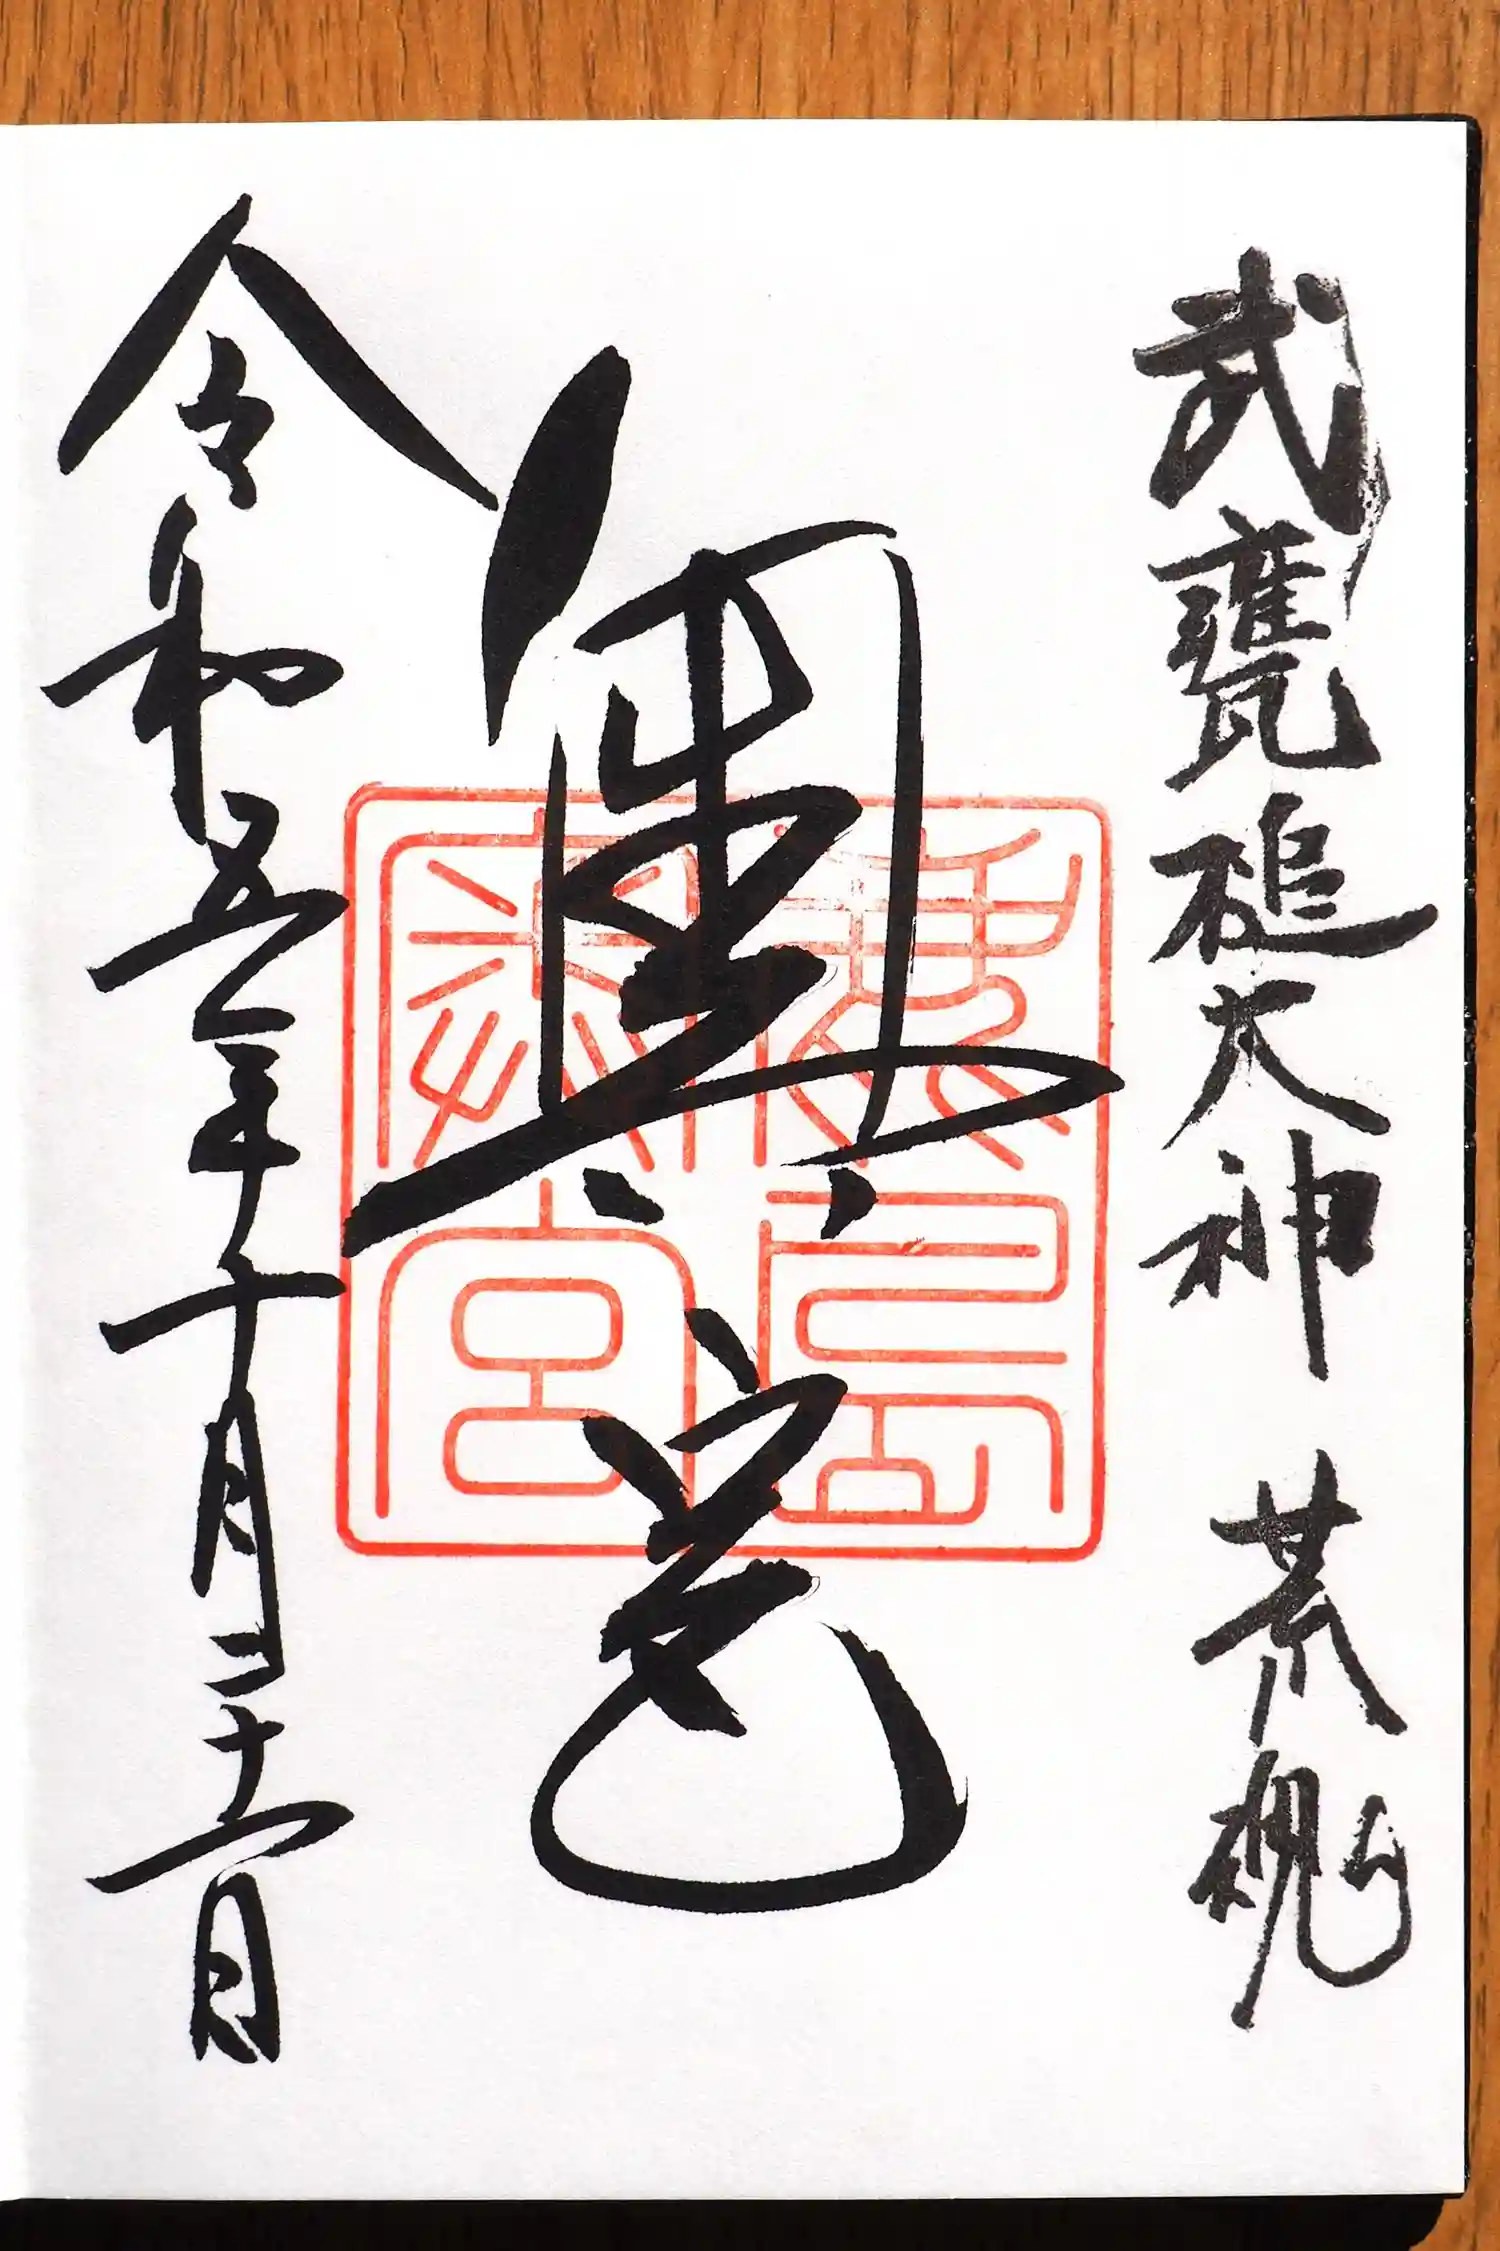 武甕槌大神 荒魂
奥宮
鹿島
奥宮
令和五年十月二十一日